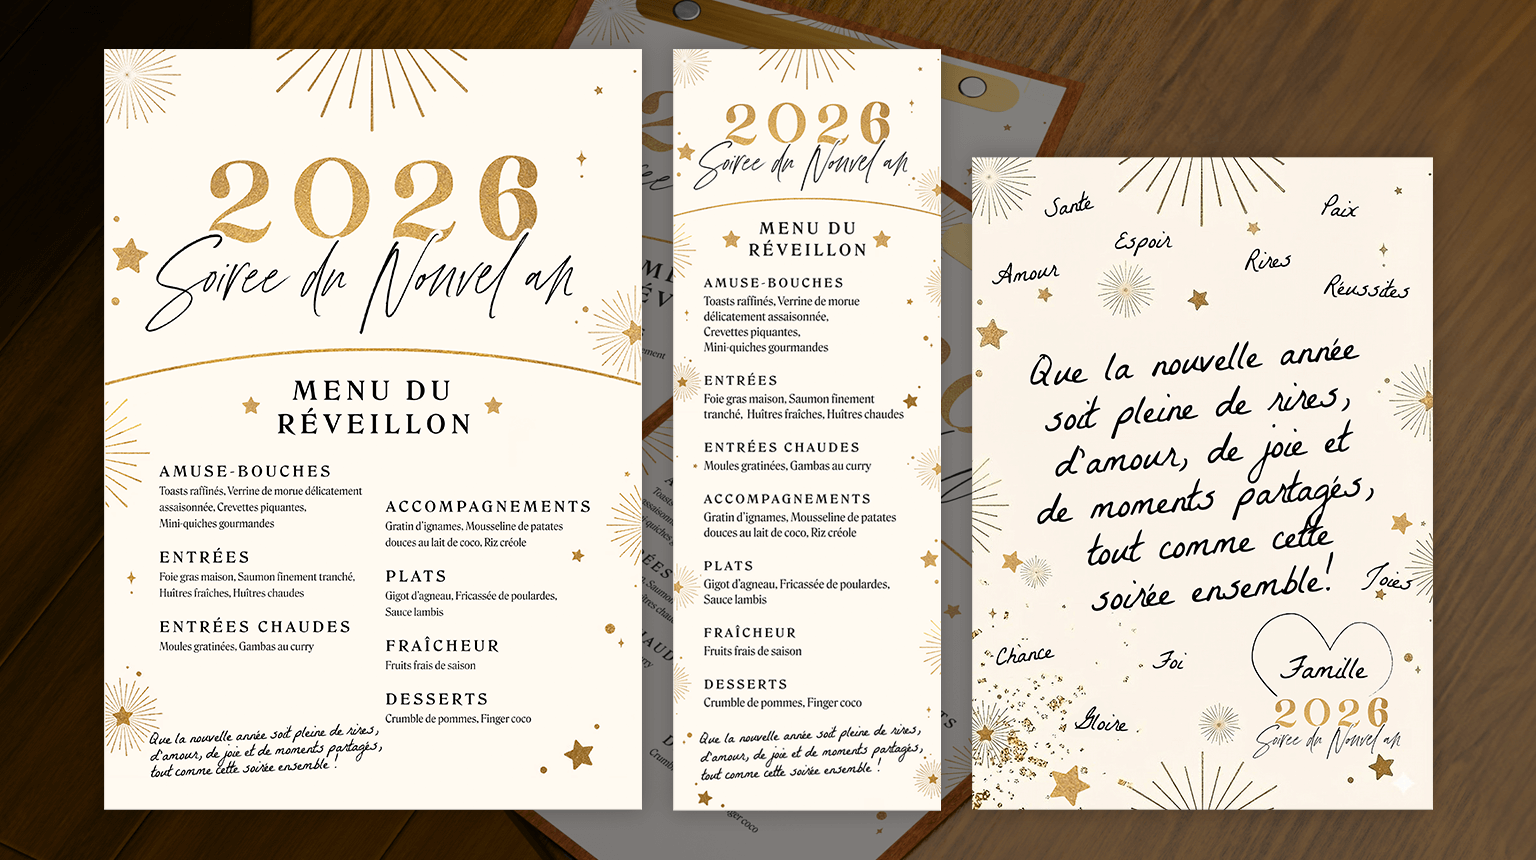 2026
Soiree du Nouvel an
MENU DU
RÉVEILLON
AMUSE-BOUCHES
Toasts raffinés, Verrine de morue délicatement
assaisonnée, Crevettes piquantes,
Mini-quiches gourmandes
ENTRÉES
Foie gras maison, Saumon finement tranché,
Huîtres fraîches, Huîtres chaudes
ENTRÉES CHAUDES
Moules gratinées, Gambas au curry
ACCOMPAGNEMENTS
Gratin d'ignames, Mousseline de patates
douces au lait de coco, Riz créole
PLATS
Gigot d'agneau, Fricassée de poulardes,
Sauce lambis
FRAÎCHEUR
Fruits frais de saison
DESSERTS
Crumble de pommes, Finger coco
Que la nouvelle année soit pleine de rires,
d'amour, de joie et de moments partagés,
tout comme cette soirée ensemble !
2026
Soiree du Nouvel an
MENU DU
RÉVEILLON
AMUSE-BOUCHES
Toasts raffinés, Verrine de morue
délicatement assaisonnée,
Crevettes piquantes,
Mini-quiches gourmandes
ENTRÉES
Foie gras maison, Saumon finement
tranché, Huîtres fraîches, Huîtres chaudes
ENTRÉES CHAUDES
Moules gratinées, Gambas au curry
ACCOMPAGNEMENTS
Gratin d'ignames, Mousseline de patates
douces au lait de coco, Riz créole
PLATS
Gigot d'agneau, Fricassée de poulardes,
Sauce lambis
FRAÎCHEUR
Fruits frais de saison
DESSERTS
Crumble de pommes, Finger coco
Que la nouvelle année soit pleine de rires,
d'amour, de joie et de moments partagés,
tout comme cette soirée ensemble !
Santé
Paix
Espoir
Rires
Amour
Réussites
Que la nouvelle année
soit pleine de rires,
d'amour, de joie et
de moments partagés,
tout comme cette
soirée ensemble!
Joies
Chance
Foi
Famille
Gloire
2026
Soiree du Nouvel an